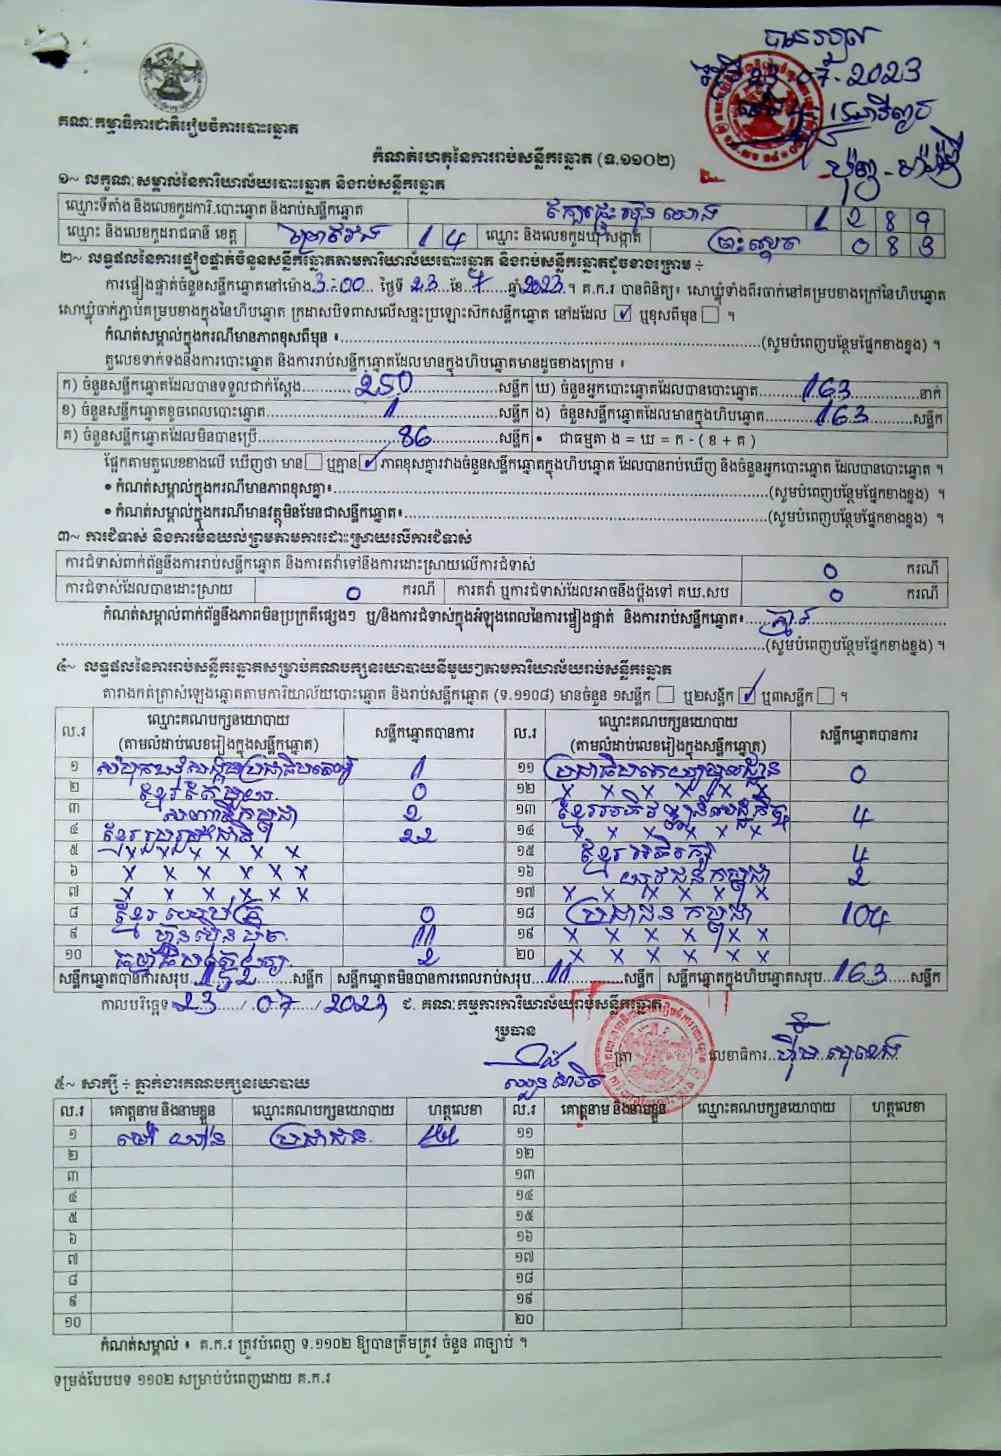 បានឃើញ
ថ្ងៃទី 23. 07. 2023
គណៈកម្មាធិការជាតិរៀបចំការបោះឆ្នោត
កំណត់ហេតុនៃការរាប់សន្លឹកឆ្នោត (ទ.១១០២)
១~ លក្ខណៈសម្គាល់នៃការិយាល័យបោះឆ្នោត និងរាប់សន្លឹកឆ្នោត
ឈ្មោះទីតាំង និងលេខកូដការិ.បោះឆ្នោត និងរាប់សន្លឹកឆ្នោត 1 2 8 9
ឈ្មោះ និងលេខកូដរាជធានី ខេត្ត ព្រៃវែង 1 4 ឈ្មោះ និងលេខកូដឃុំ សង្កាត់ 0 8 3
២~ លទ្ធផលនៃការផ្ទៀងផ្ទាត់ចំនួនសន្លឹកឆ្នោតតាមការិយាល័យបោះឆ្នោត និងរាប់សន្លឹកឆ្នោតដូចខាងក្រោម ÷
ការផ្ទៀងផ្ទាត់ចំនួនសន្លឹកឆ្នោតនៅម៉ោង 3:00 ថ្ងៃទី 23 ខែ 7 ឆ្នាំ 2023 ។ គ.ក.រ បានពិនិត្យ៖ សោឃ្មុំទាំងពីរចាក់នៅគម្របខាងក្រៅនៃហិបឆ្នោត
សោឃ្មុំចាក់ភ្ជាប់គម្របខាងក្នុងនៃហិបឆ្នោត ក្រដាសបិទពាសលើសន្ទះប្រឡោះសឹកសន្លឹកឆ្នោត នៅដដែល ☑ ឬខុសពីមុន ☐ ។
កំណត់សម្គាល់ក្នុងករណីមានភាពខុសពីមុន ៖ (សូមបំពេញបន្ថែមផ្នែកខាងខ្នង) ។
តួលេខទាក់ទងនឹងការបោះឆ្នោត និងការរាប់សន្លឹកឆ្នោតដែលមានក្នុងហិបឆ្នោតមានដូចខាងក្រោម ៖
ក) ចំនួនសន្លឹកឆ្នោតដែលបានទទួលជាក់ស្តែង 250 សន្លឹក ឃ) ចំនួនអ្នកបោះឆ្នោតដែលបានបោះឆ្នោត 163 នាក់
ខ) ចំនួនសន្លឹកឆ្នោតខូចពេលបោះឆ្នោត 1 សន្លឹក ង) ចំនួនសន្លឹកឆ្នោតដែលមានក្នុងហិបឆ្នោត 163 សន្លឹក
គ) ចំនួនសន្លឹកឆ្នោតដែលមិនបានប្រើ 86 សន្លឹក • ជាធម្មតា ង = ឃ = ក - ( ខ + គ )
ផ្អែកតាមតួលេខខាងលើ ឃើញថា មាន ☐ ឬគ្មាន ☑ ភាពខុសគ្នារវាងចំនួនសន្លឹកឆ្នោតក្នុងហិបឆ្នោត ដែលបានរាប់ឃើញ និងចំនួនអ្នកបោះឆ្នោត ដែលបានបោះឆ្នោត ។
• កំណត់សម្គាល់ក្នុងករណីមានភាពខុសគ្នា៖ (សូមបំពេញបន្ថែមផ្នែកខាងខ្នង) ។
• កំណត់សម្គាល់ក្នុងករណីមានវត្ថុមិនមែនជាសន្លឹកឆ្នោត៖ (សូមបំពេញបន្ថែមផ្នែកខាងខ្នង) ។
៣~ ការជំទាស់ និងការមិនយល់ព្រមតាមការដោះស្រាយលើការជំទាស់
ការជំទាស់ពាក់ព័ន្ធនឹងការរាប់សន្លឹកឆ្នោត និងការតវ៉ាទៅនឹងការដោះស្រាយលើការជំទាស់ 0 ករណី
ការជំទាស់ដែលបានដោះស្រាយ 0 ករណី ការតវ៉ា ឬការជំទាស់ដែលអាចនឹងប្តឹងទៅ គឃ.សប 0 ករណី
កំណត់សម្គាល់ពាក់ព័ន្ធនឹងភាពមិនប្រក្រតីផ្សេងៗ ឬ/និងការជំទាស់ក្នុងអំឡុងពេលនៃការផ្ទៀងផ្ទាត់ និងការរាប់សន្លឹកឆ្នោត៖ គ្មាន
(សូមបំពេញបន្ថែមផ្នែកខាងខ្នង) ។
៤~ លទ្ធផលនៃការរាប់សន្លឹកឆ្នោតសម្រាប់គណបក្សនយោបាយនីមួយៗតាមការិយាល័យរាប់សន្លឹកឆ្នោត
តារាងកត់ត្រាសំឡេងឆ្នោតតាមការិយាល័យបោះឆ្នោត និងរាប់សន្លឹកឆ្នោត (ទ.១១០៨) មានចំនួន ១សន្លឹក ☐ ឬ២សន្លឹក ☑ ឬ៣សន្លឹក ☐ ។
ល.រ ឈ្មោះគណបក្សនយោបាយ (តាមលំដាប់លេខរៀងក្នុងសន្លឹកឆ្នោត) សន្លឹកឆ្នោតបានការ ល.រ ឈ្មោះគណបក្សនយោបាយ (តាមលំដាប់លេខរៀងក្នុងសន្លឹកឆ្នោត) សន្លឹកឆ្នោតបានការ
១ សំបុកឃ្មុំសង្គមប្រជាធិបតេយ្យ 1 ១១ ប្រជាធិបតេយ្យមូលដ្ឋាន 0
២ ខ្មែរឯកភាពជាតិ 0 ១២ x x x x x x
៣ 2 ១៣ ខ្មែរអភិវឌ្ឍន៍សេដ្ឋកិច្ច 4
៤ ខ្មែររួបរួមជាតិ 22 ១៤ x x x x x x
៥ x x x x x x ១៥ ខ្មែរអភិរក្ស 4
៦ x x x x x x ១៦ យុវជនកម្ពុជា 2
៧ x x x x x x ១៧ x x x x x x
៨ ខ្មែរឈប់ក្រ 0 ១៨ ប្រជាជនកម្ពុជា 104
៩ ហ្វ៊ុនស៊ិនប៉ិច 11 ១៩ x x x x x x
១០ ធម្មាធិបតេយ្យ 2 ២០ x x x x x x
សន្លឹកឆ្នោតបានការសរុប 152 សន្លឹក សន្លឹកឆ្នោតមិនបានការពេលរាប់សរុប 11 សន្លឹក សន្លឹកឆ្នោតក្នុងហិបឆ្នោតសរុប 163 សន្លឹក
កាលបរិច្ឆេទ 23 / 07 / 2023 ជ. គណៈកម្មការការិយាល័យរាប់សន្លឹកឆ្នោត
ប្រធាន
ត្រា លេខាធិការ
៥~ សាក្សី ÷ ភ្នាក់ងារគណបក្សនយោបាយ
ល.រ គោត្តនាម និងនាមខ្លួន ឈ្មោះគណបក្សនយោបាយ ហត្ថលេខា ល.រ គោត្តនាម និងនាមខ្លួន ឈ្មោះគណបក្សនយោបាយ ហត្ថលេខា
១ ប្រជាជន ១១
២ ១២
៣ ១៣
៤ ១៤
៥ ១៥
៦ ១៦
៧ ១៧
៨ ១៨
៩ ១៩
១០ ២០
កំណត់សម្គាល់ ៖ គ.ក.រ ត្រូវបំពេញ ទ.១១០២ ឱ្យបានត្រឹមត្រូវ ចំនួន ៣ច្បាប់ ។
ទម្រង់បែបបទ ១១០២ សម្រាប់បំពេញដោយ គ.ក.រ